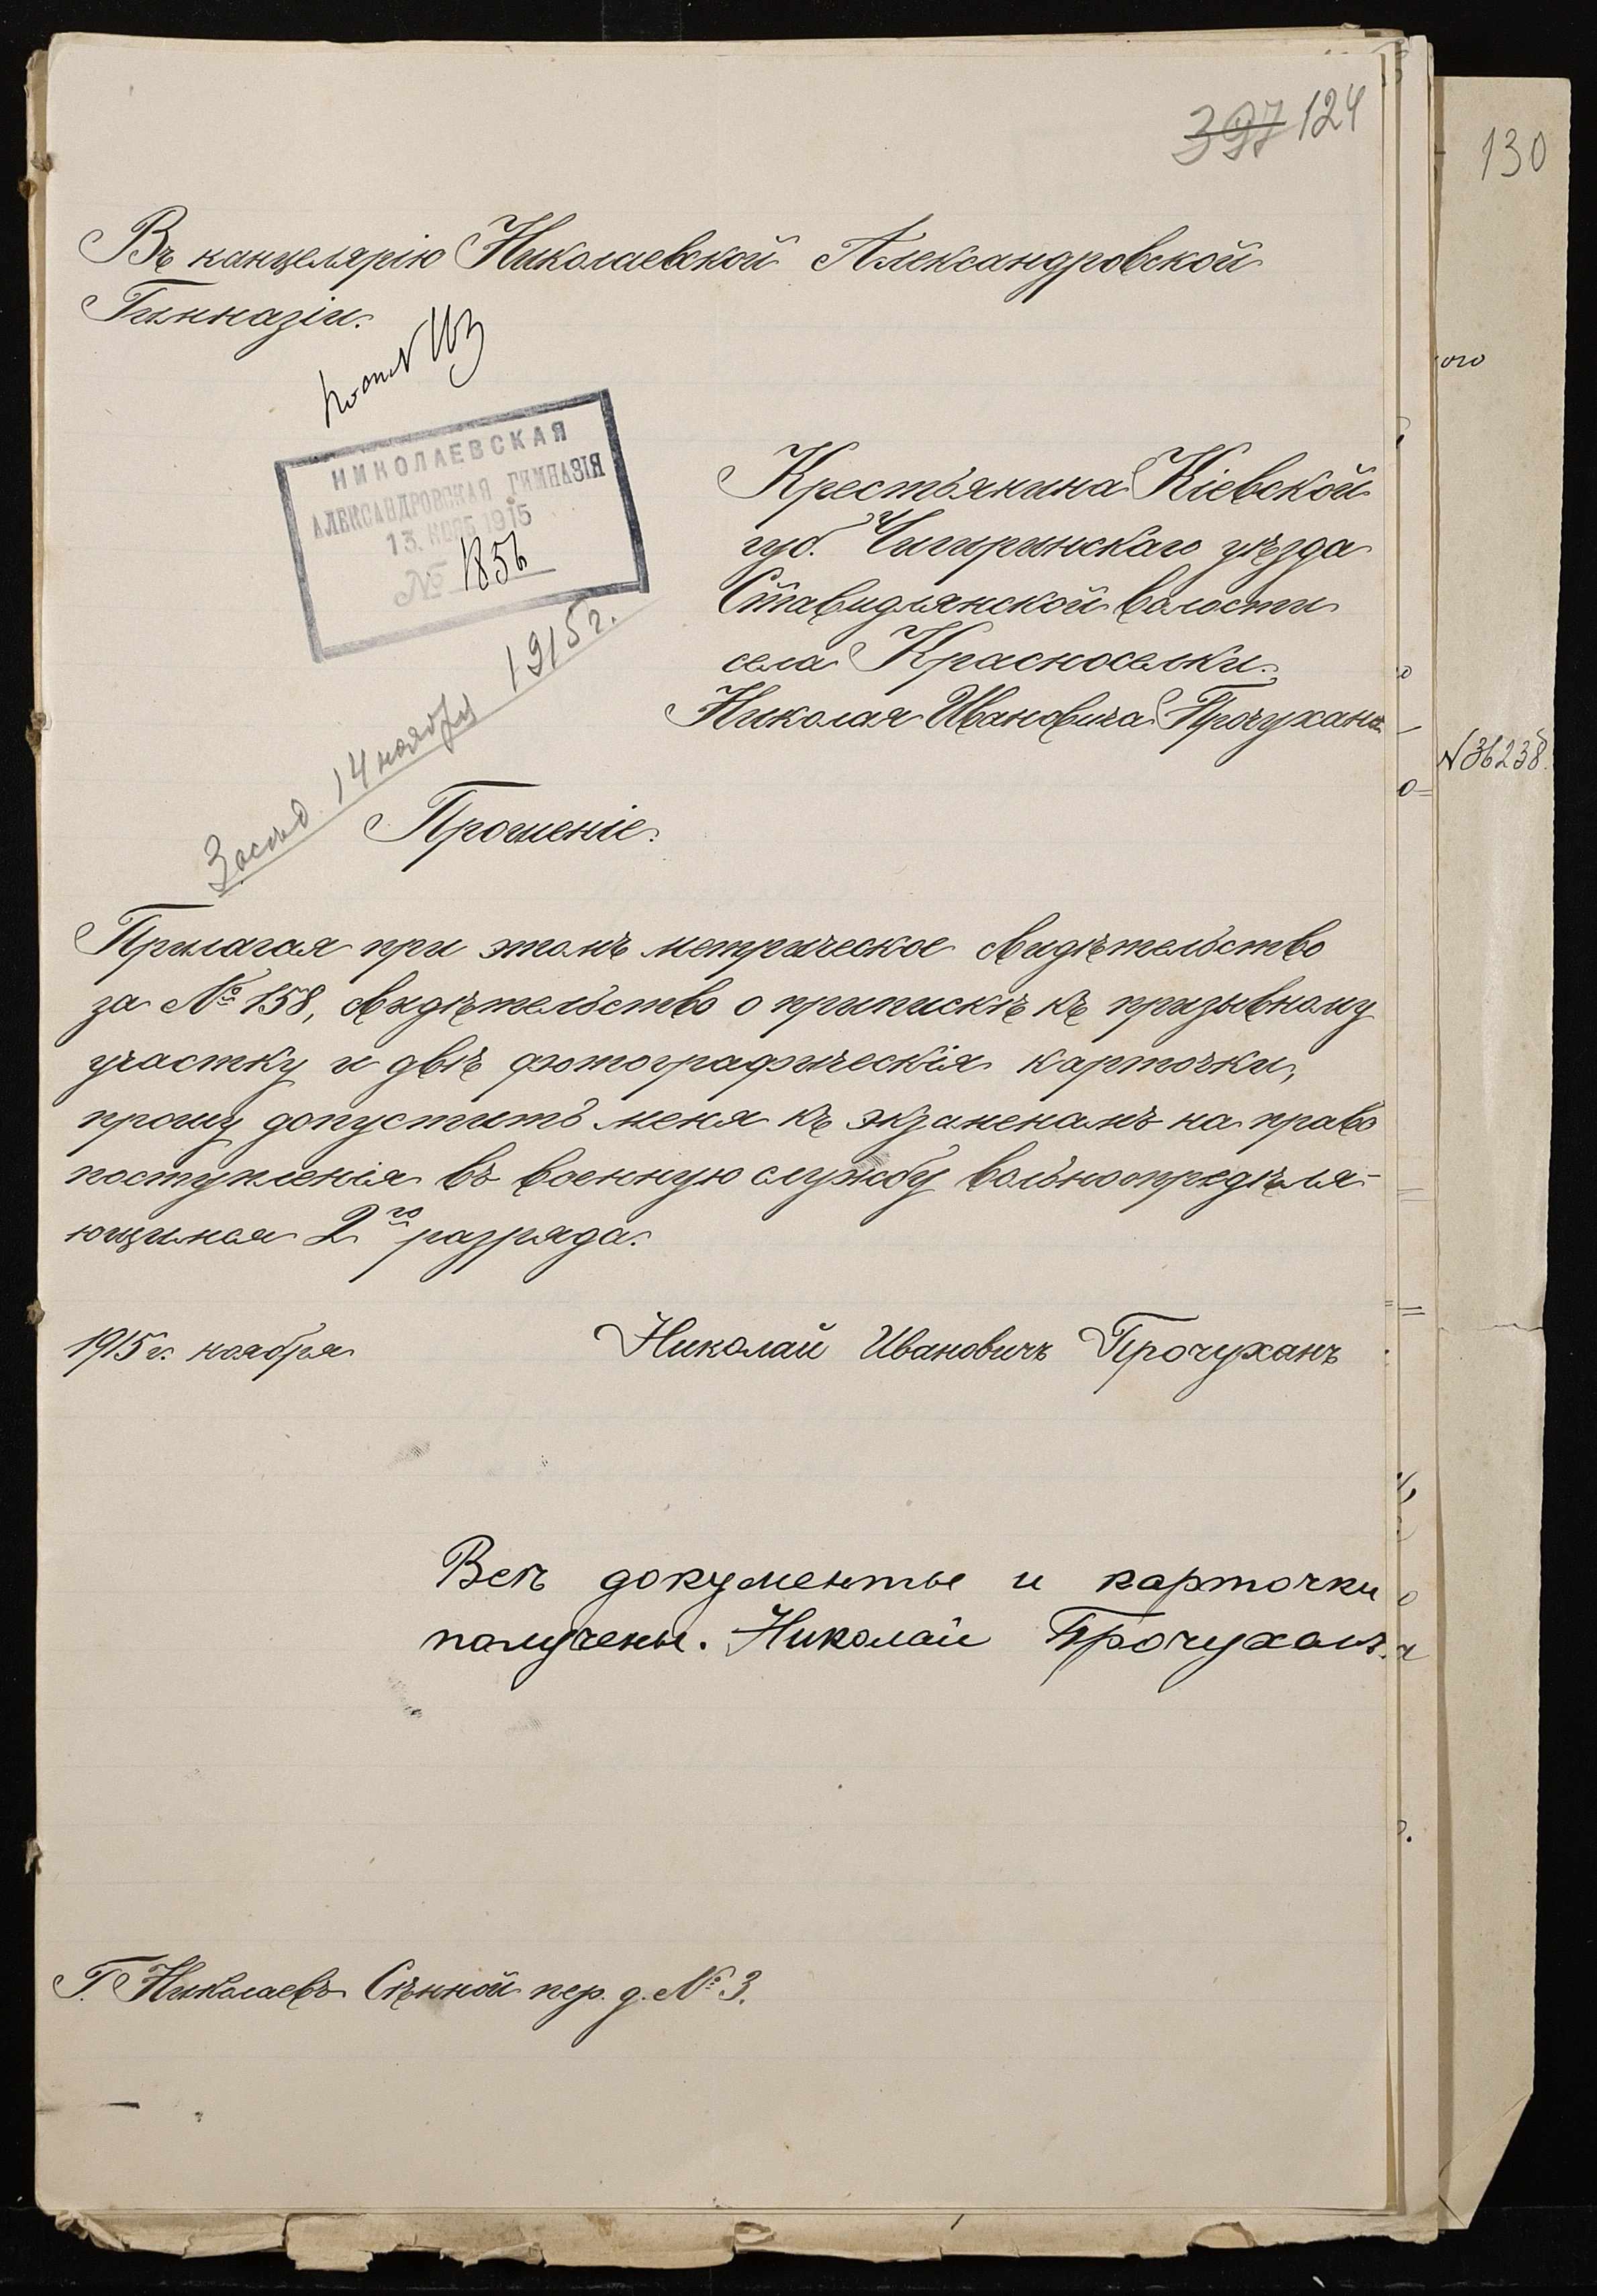 397 124
130
Въ канцелярію Николаевской Александровской
Гимназіи.
НИКОЛАЕВСКАЯ
АЛЕКСАНДРОВСКАЯ ГИМНАЗІЯ
13. НОЯБ 1915
№ 1856
Крестьянина Кіевской
губ. Чигиринскаго уѣзда
Ставидлянской волости
села Красноселки.
Николая Ивановича Прочухана
Засѣд. 14 ноября 1915 г.
ого
N 36238.
Прошеніе.
Прилагая при этомъ метрическое свидѣтельство
за № 158, свидѣтельство о припискѣ къ призывному
участку и двѣ фотографическія карточки,
прошу допустить меня къ экзаменамъ на право
поступленія въ военную службу вольноопредѣля-
ющимся 2го разряда.
1915 г. ноября
Николай Ивановичъ Прочуханъ
Всѣ документы и карточки
получены. Николай Прочуханъ
Г. Николаевъ Сѣнной пер. д. № 3.